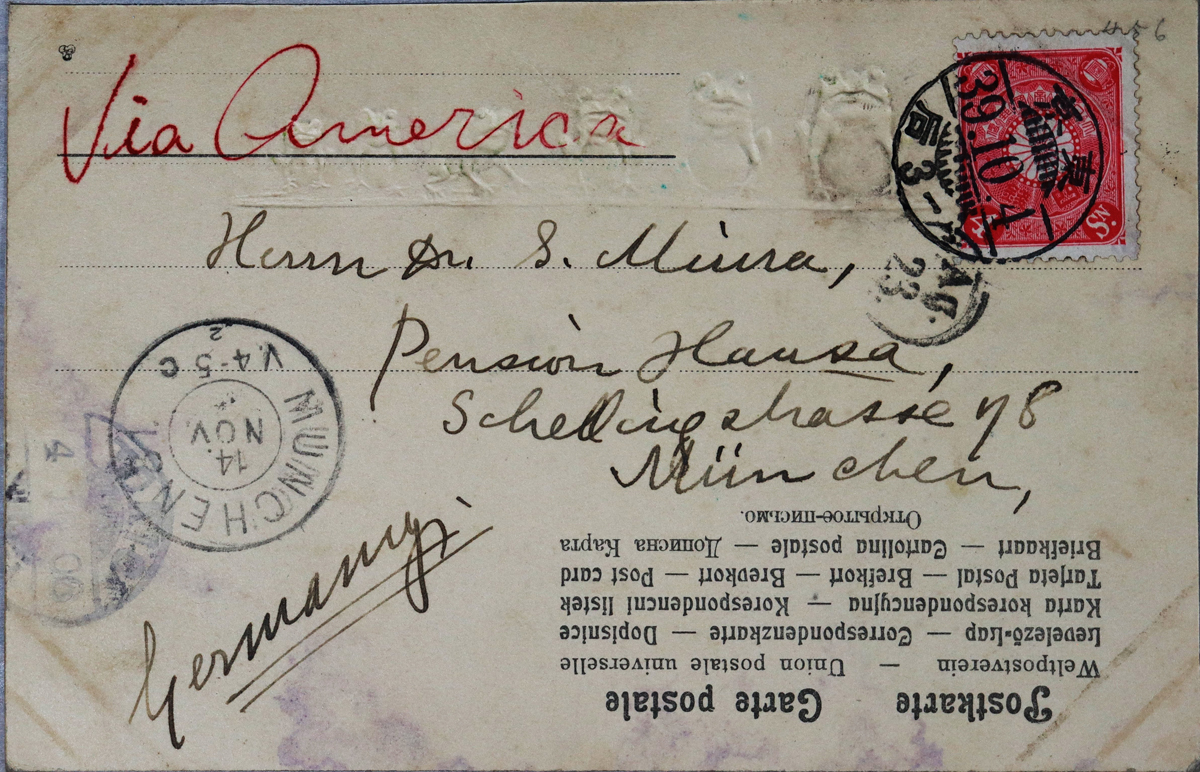 456
Via America
東京
39.10.4
后3-4
4 Sn.
Herrn Dr. S. Miura,
Pension Hansa,
Schellingstrasse 78
München,
Germany.
MUNCHEN
14. NOV.
V.4-5 C
2
Postkarte Carte postale
Weltpostverein — Union postale universelle
Levelező-Lap — Correspondenzkarte — Dopisnice
Karta korespondencyjna — Korespondencni listek
Tarjeta Postal — Brefkort — Brevkort — Post card
Briefkaart — Cartolina postale — Дописна Карта
Открытое-письмо.